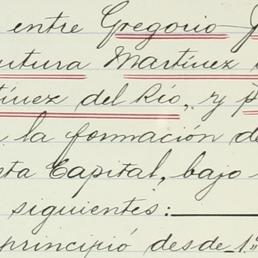 entre Gregorio
utura Martínez
tínez del Río, y
la formación de
ta Capital, bajo
siguientes:
principió desde 1º